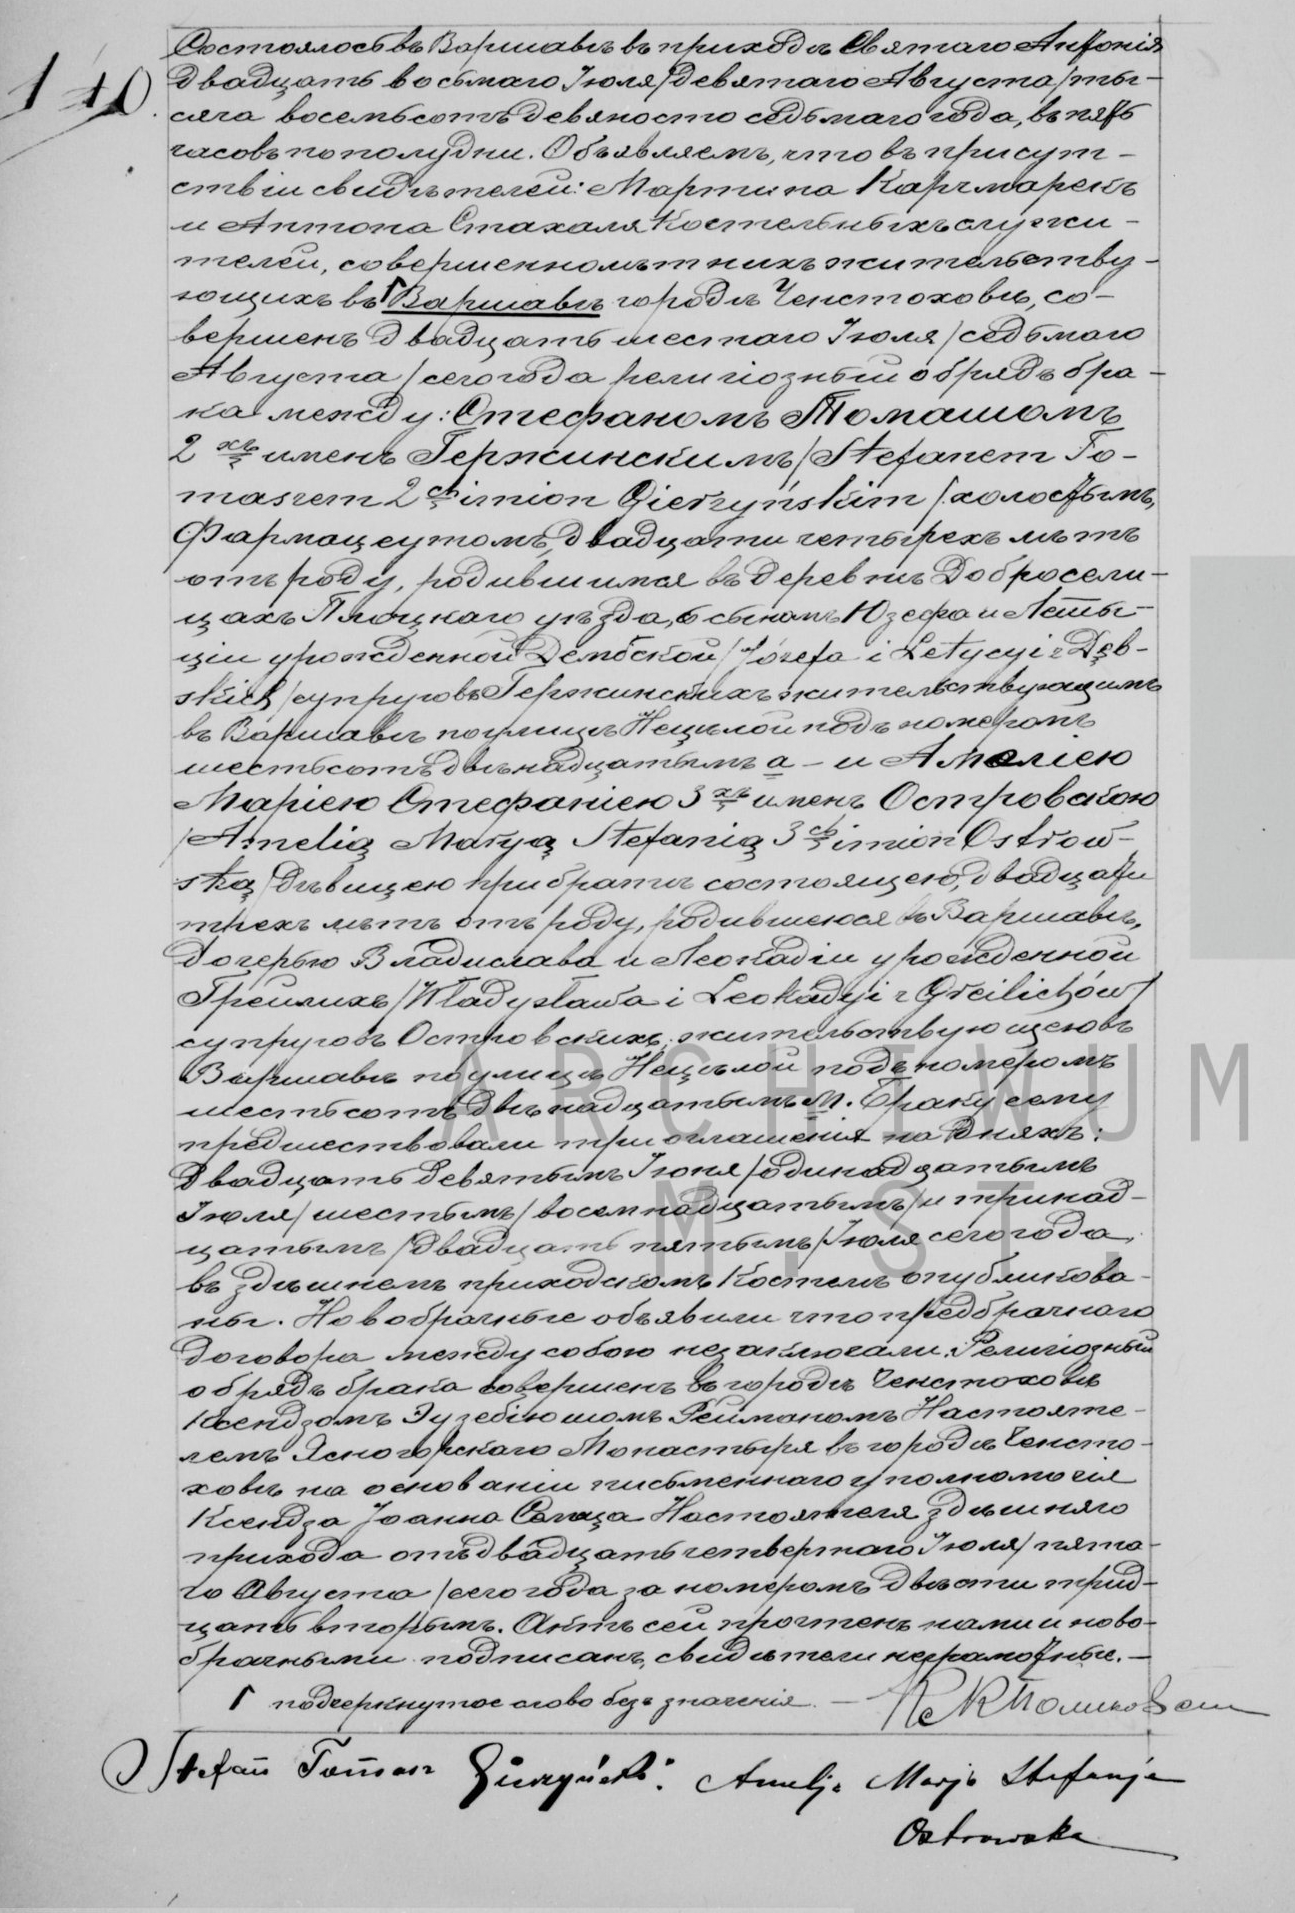 140.
Состоялось въ Варшавѣ въ приходѣ Святаго Антонія
двадцать восьмаго Іюля /девятаго Августа/ ты-
сяча восемьсотъ девяносто седьмаго года, въ пять
часовъ пополудни. Объявляемъ, что въ присут-
ствіи свидѣтелей: Мартина Карчмарекъ
и Антона Стахаля Костельныхъ служи-
телей, совершеннолѣтнихъ жительству-
ющихъ въ Варшавѣ городѣ Ченстоховѣ, со-
вершенъ двадцать шестаго Іюля /седьмаго
Августа/ сего года религіозный обрядъ бра-
ка между: Стефаномъ Томашомъ
2хъ именъ Гержинскимъ /Stefanem To-
maszem 2ch imion Gierzyńskim/ холостымъ,
Фармацеутомъ, двадцати четырехъ лѣтъ
отъ роду, родившимся въ деревнѣ Добросели-
цахъ Плоцкаго уѣзда, сыномъ Юзефа и Леты-
ціи урожденной Дембской /Józefa i Letycyi z Dęb-
skich/ супруговъ Гержинскихъ жительствующимъ
въ Варшавѣ по улицѣ Нецѣлой подъ номеромъ
шестьсотъ двѣнадцатымъ а - и Амеліею
Маріею Стефаніею 3хъ именъ Островскою
/Amelią Maryą Stefanią 3ch imion Ostrow-
ską/ дѣвицею при братѣ состоящею, двадцати
трехъ лѣтъ отъ роду, родившеюся въ Варшавѣ,
дочерью Владислава и Леокадіи урожденной
Грейлихъ /Władysława i Leokadyi z Greilichów/
супруговъ Островскихъ, жительствующею въ
Варшавѣ по улицѣ Нецѣлой подъ номеромъ
шестьсотъ двѣнадцатымъ М. Браку сему
предшествовали три оглашенія на дняхъ:
двадцать девятымъ Іюня /одинадцатымъ
Іюля/ шестымъ /восемнадцатымъ/ и тринад-
цатымъ /двадцать пятымъ/ Іюля сего года,
въ здѣшнемъ приходскомъ Костелѣ опубликова-
ны. Новобрачные объявили что предбрачнаго
договора между собою не заключали. Религіозный
обрядъ брака совершенъ въ городѣ Ченстоховѣ
Ксендзомъ Эузебіюшомъ Рейманомъ Настояте-
лемъ Ясногорскаго Монастыря въ городѣ Ченсто-
ховѣ на основаніи письменнаго уполномочія
Ксендза Іоанна Настоятеля здѣшняго
прихода отъ двадцать четвертаго Іюля /пята-
го Августа/ сего года за номеромъ двѣсти трид-
цать вторымъ. Актъ сей прочтенъ нами и ново-
брачными подписанъ, свидѣтели неграмотные. -
Г подчеркнутое слово безъ значенія. -
Stefan Tomasz Gierzyński. Amelja Marja Stefanja
Ostrowska
ARCHIWUM
M. ST.